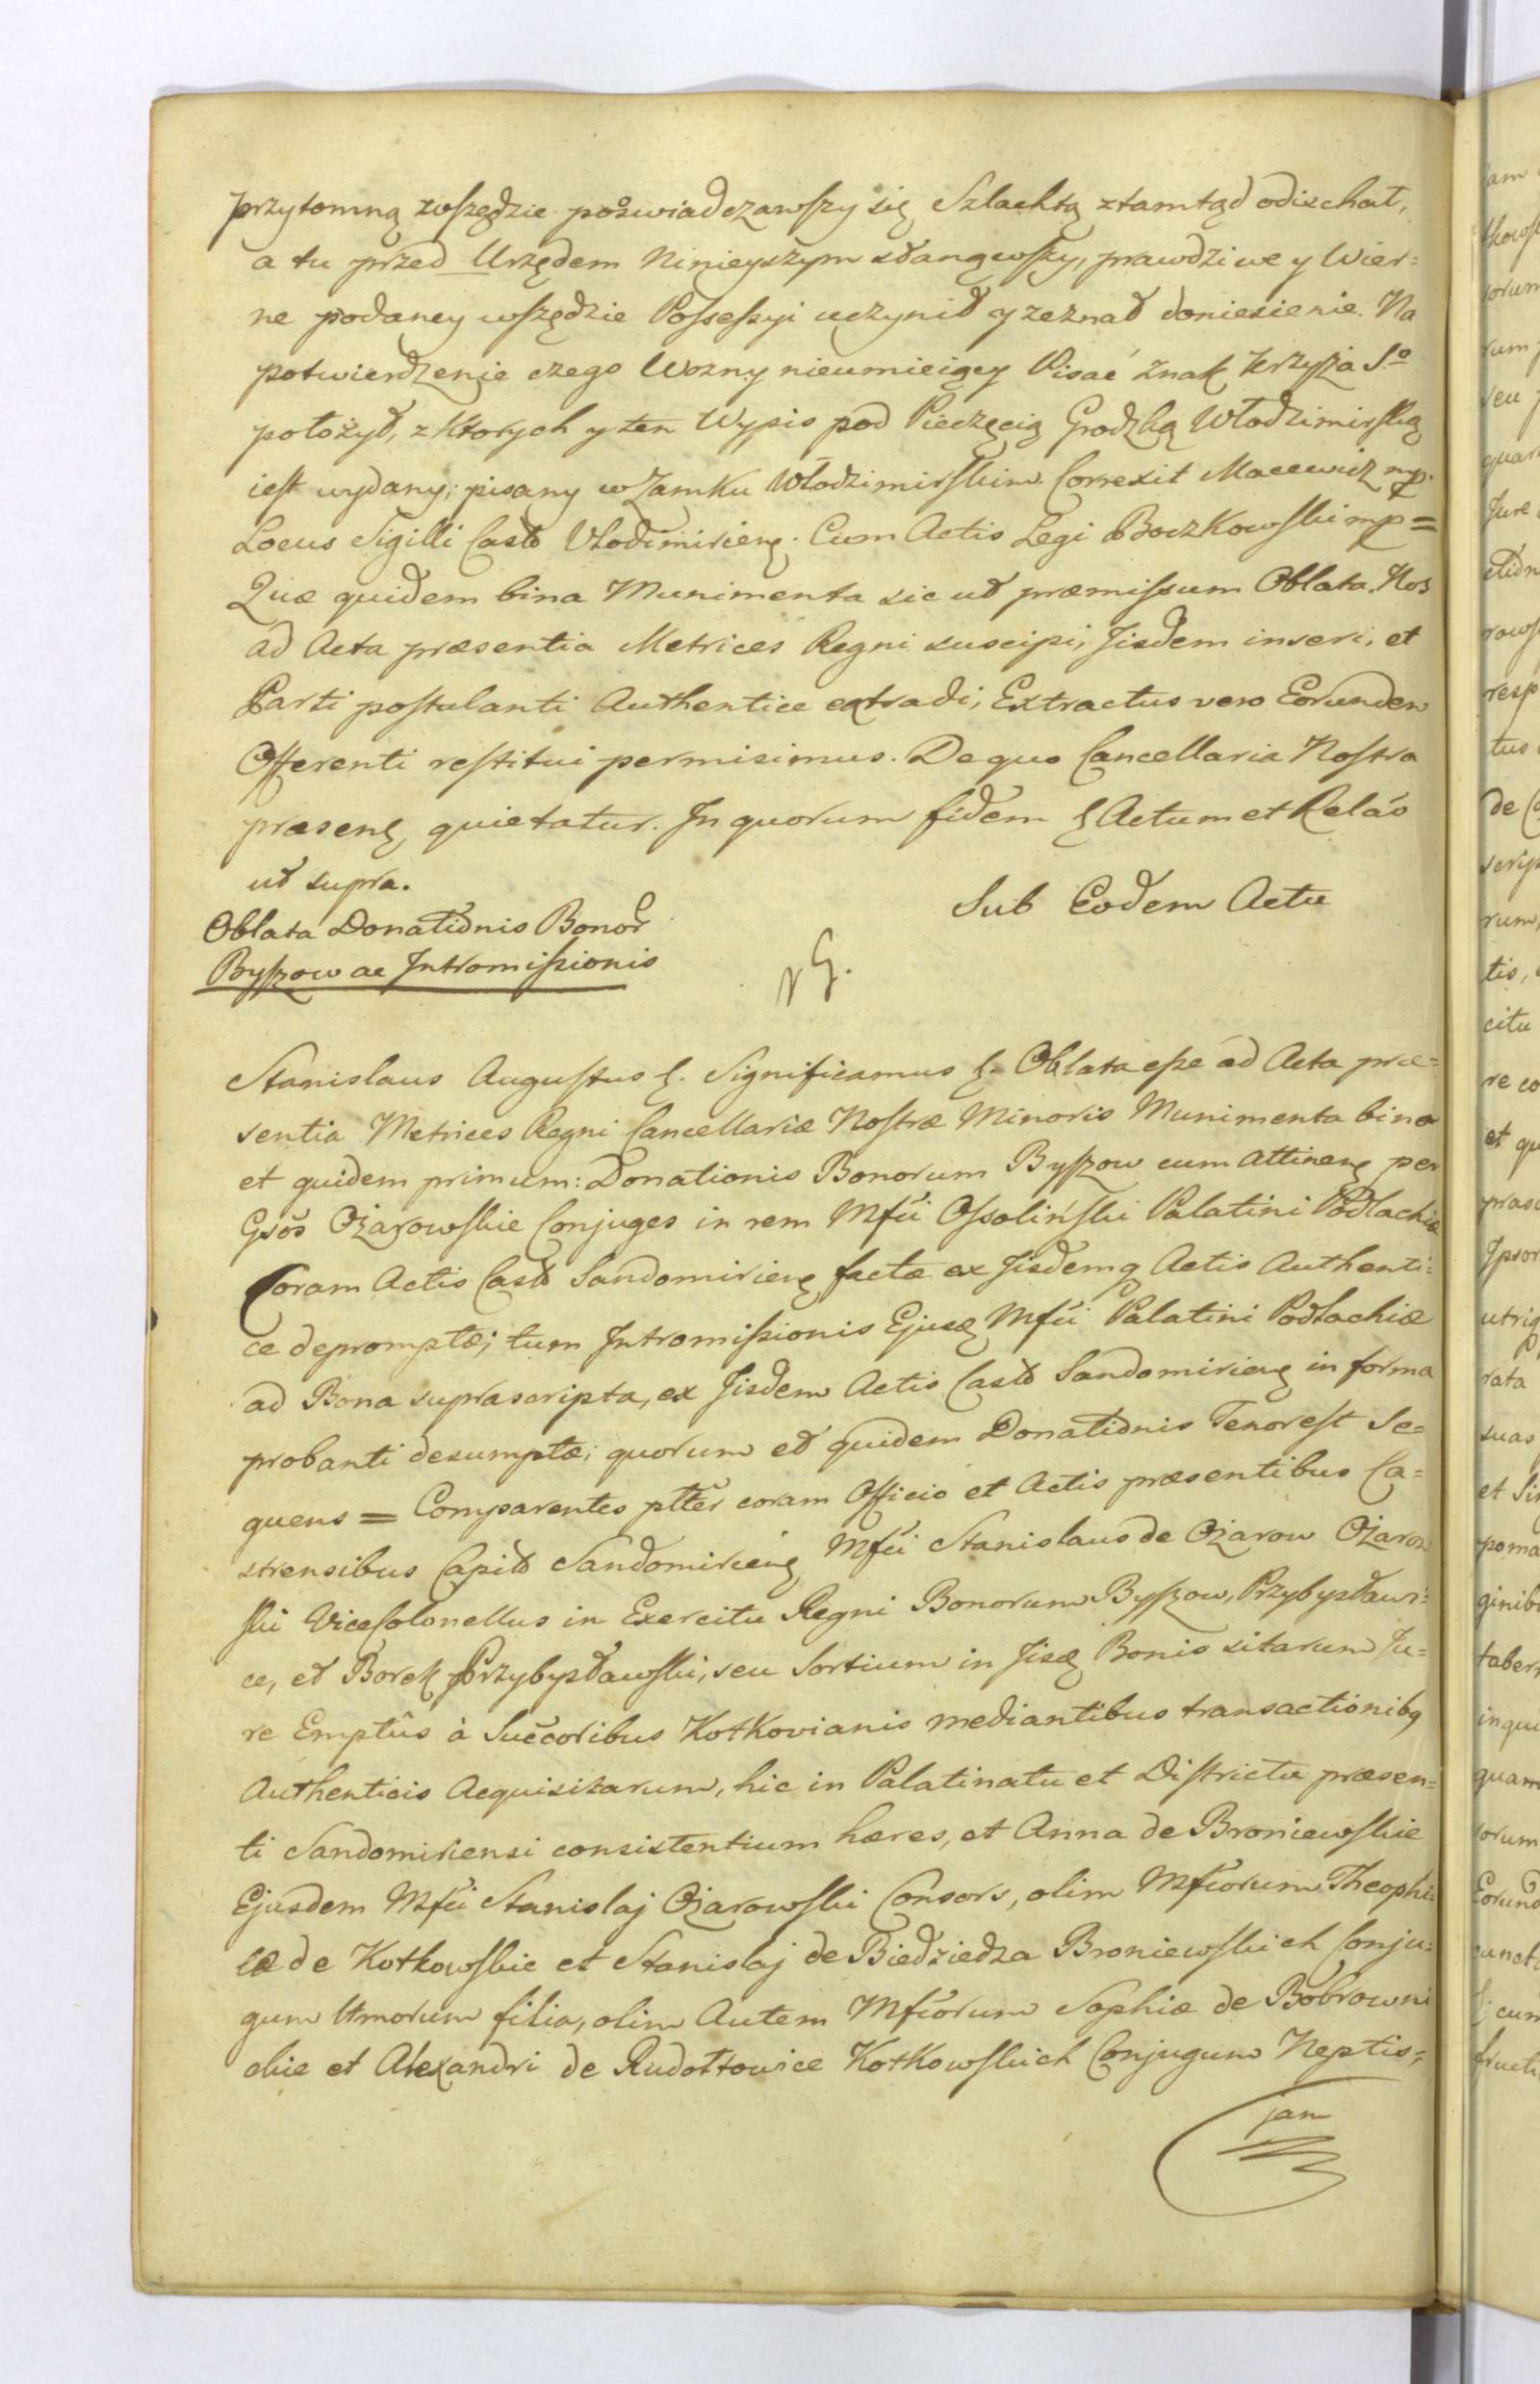 przytomną wszędzie poświadczawszy się Szlachtą ztamtąd odiechał,
a tu przed Urzędem Ninieyszym stanąwszy, prawdziwe y Wier=
ne podaney wszędzie Possessyi uczynił y zeznał doniesienie. Na
potwierdzenie czego Wozny nieumieiący Pisać Znak Krzyża S.o
położył, z Ktorych y ten Wypis pod Pieczęcią Grodzką Włodzimirską
iest wydany; pisany w Zamku Włodzimirskim. Correxit Macewicz mp.
Locus Sigilli Castr Vlodimirien. Cum Actis Legi Boczkowski mp =
Quæ quidem bina Munimenta sic ut præmissum Oblata, Nos
ad Acta præsentia Metrices Regni suscipi, Iisdem inseri, et
Parti postulanti Authentice extradi, Extractus vero Eorundem
Offerenti restitui permisimus. De quo Cancellaria Nostra
præsen. quietatur. In quorum fidem & Actum et Relão
ut supra.
Sub Eodem Actu
Oblata Donationis Bonor
Byszow ac Intromissionis
Stanislaus Augustus &. Significamus &. Oblata esse ad Acta præ=
sentia Metrices Regni Cancellariæ Nostræ Minoris Munimenta bina
et quidem primum: Donationis Bonorum Byszow cum Attinen. per
Gsõs Ożarowskie Conjuges in rem Mfci Ossoliński Palatini Podlachiæ
Coram Actis Castr Sandomirien. factæ ex Iisdemq Actis Authenti=
ce depromptæ; tum Intromissionis Ejusd. Mfci Palatini Podlachiæ
ad Bona suprascripta, ex Iisdem Actis Castr Sandomirien. in forma
probanti desumptæ; quorum et quidem Donationis Tenor est Se=
quens = Comparentes ptter coram Officio et Actis præsentibus Ca=
strensibus Capit Sandomirien. Mfci Stanislaus de Ożarow Ożarow
ski ViceColonellus in Exercitu Regni Bonorum Byszow, Przybysławi=
ce, et Borek Przybysławski, seu Sortium in Iisd. Bonis sitarum Ju=
re Emptûs à Succoribus Kotkovianis mediantibus transactionibq
Authenticis Acquisitarum, hic in Palatinatu et Districtu præsen=
ti Sandomiriensi consistentium hæres, et Anna de Broniewskie
Ejusdem Mfci Stanislaj Ożarowski Consors, olim Mfcorum Theophi=
læ de Kotkowskie et Stanislaj de Biedziedza Broniewskich Conju=
gum Utmorum filia, olim Autem Mfcorum Sophiæ de Bobrowni
ckie et Alexandri de Rudołtowice Kotkowskich Conjugum Neptis,
jam